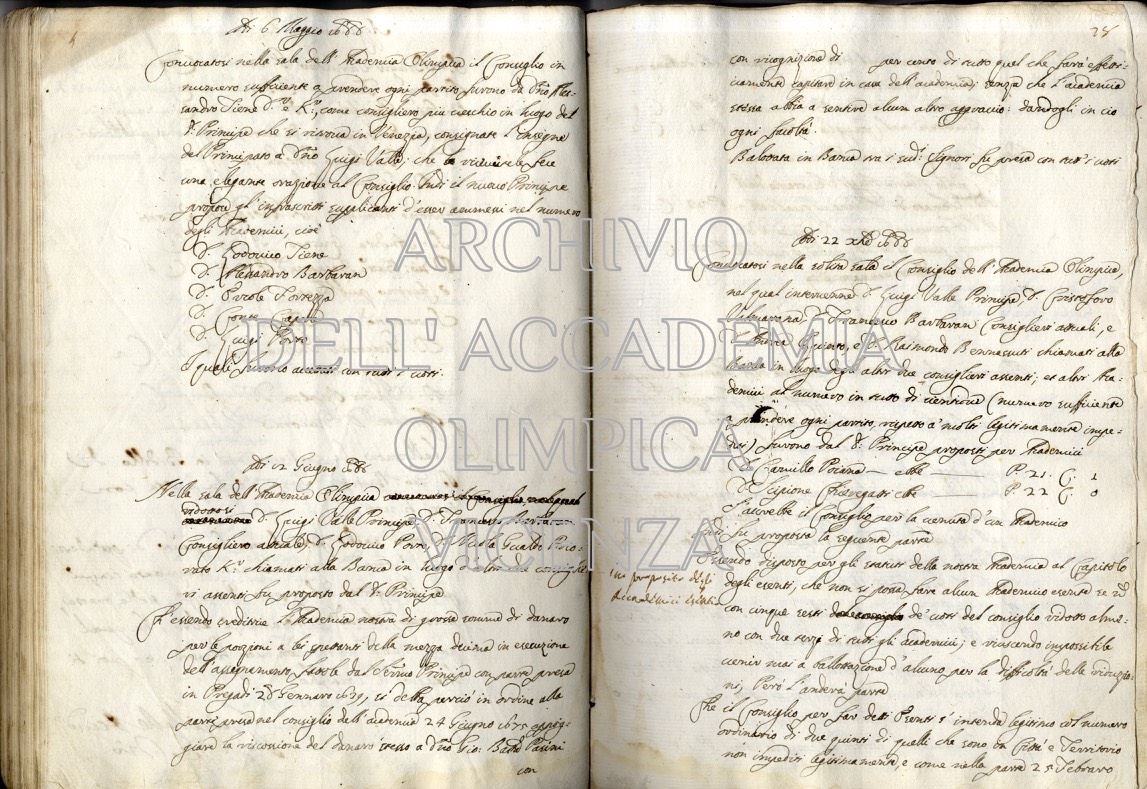 Adi 6 Maggio 1686
Convocatosi nella sala dell'Academia Olimpica il Consiglio in
numero sufficiente a prendere ogni partito furono da D.no Ales-
sandro Tiene D.r e K.r, come consigliero più vecchio in luogo del
S.r Principe che si ritrova in Venezia, consignate l'Insegne
del Principato a D.no Luigi Valle; che le fece
una elegante orazione al Consiglio. Indi il nuovo Principe
propose gl'infrascritti supplicanti d'esser ammessi nel numero
degli Academici, cioè
S.r Lodovico Tiene
S.r Alessandro Barbaran
S.r Ercole Fortezza
S.r Conte Capra
S.r Luigi Porto
I quali furono accettati con tutti i voti.
Adi 12 Giugno 1686
Nella sala dell'Academia Olimpica
ridottosi
S.r Luigi Valle Principe S.r Francesco Barbaran
Consigliero attuale, S.r Lodovico Porto, S.r Nicola Gualdo Prio-
rato K.r chiamati alla Banca in luogo d'altri due consiglie-
ri assenti fu proposto dal S.r Principe
Ch'essendo creditrice l'Academia nostra di grossa somma di danaro
per le porzioni a lei spettanti della mezza decima in esecuzione
dell'assegnamento fattole dal Ser.mo Principe con parte presa
in Pregadi 20 Gennaro 1639, si debba perciò in ordine alla
parte presa nel consiglio dell'academia 24 Giugno 1675 appog-
giare la riscossione del danaro stesso a D.no Gio: Batta Pasini
con
28
con ricognizione di per cento di tutto quel che farà effetti-
vamente capitare in cassa dell'academia; senza che l'academia
stessa abbia a sentire alcun altro aggravio: dandogli in ciò
ogni facoltà.
Balotata in Banca tra i sud.ti Signori fu presa con tutti i voti
Adi 22 Xbre 1686
Convocatosi nella solita sala il Consiglio dell'Academia Olimpica,
nel qual intervenne S.r Luigi Valle Principe S.r Cristoforo
S.r Francesco Barbaran Consiglieri attuali, e
S.r Andrea S.r Raimondo Bennassuti chiamati alla
Banca in luogo degli altri due consiglieri assenti; et altri Aca-
demici al numero in tutto di vintidue (numero sufficiente
a prendere ogni partito, rispetto a' molti legitimamente impe-
diti) furono dal S.r Principe proposti per Academici
S.r Camillo Poiana — ebbe — P. 21. C. 1
S.r Scipione Chieregatti ebbe — P. 22 C. 0
il Consiglio per la d'un Academico
Indi fu proposta la seguente parte
in proposito degli
Accademici Esenti
Essendo disposto per gli statuti della nostra Academia al Capitolo
degli esenti, che non si possa fare alcun Academico esente se nò
con cinque sesti de' voti del consiglio ridotto alme-
no con due terzi di tutti gli academici; e riuscendo impossibile
venir mai a ballottazione d'alcuno per la difficoltà delle riduzio-
ni, Però l'anderà parte
Che il Consiglio per far detti Esenti s'intenda legitimo col numero
ordinario di due quinti di quelli che sono in Città e Territorio
nõn impediti legitimamente, e come nella parte 25 Febraro